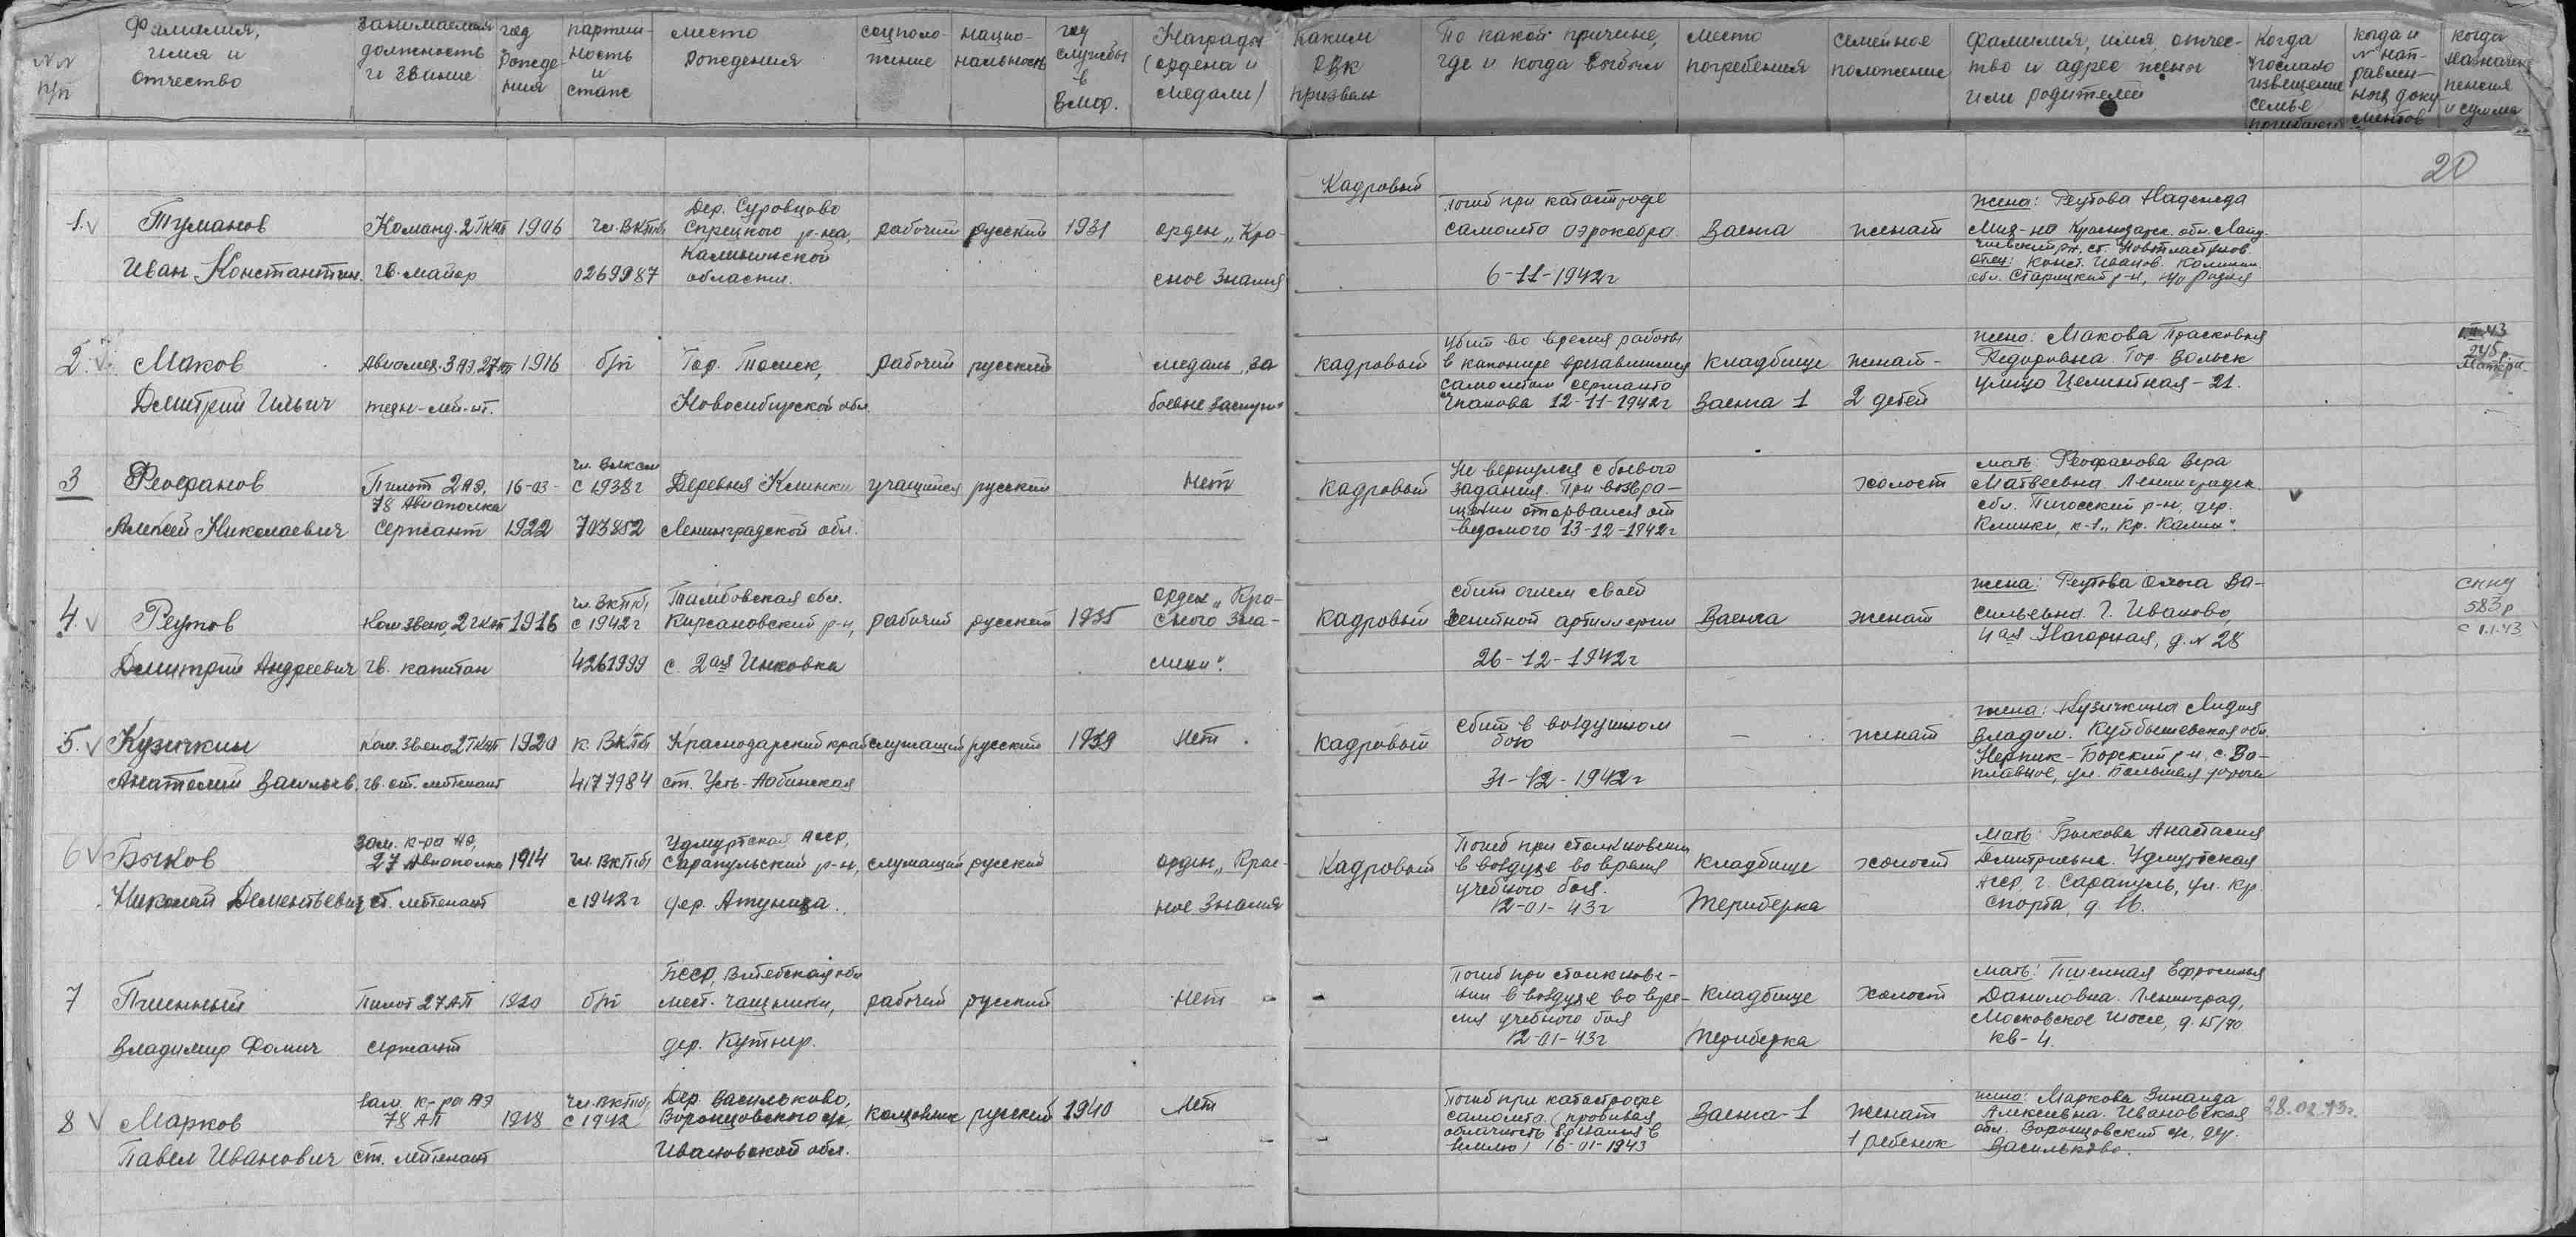 NN п/п
Фамилия, имя и отчество
Занимаемая должность и звание
год рожде- ния
партий- ность и стаж
место рождения
соцполо- жение
нацио- нальность
год службы в ВМФ.
Награды (ордена и медали)
Каким РВК призван
По какой причине, где и когда выбыл
место погребения
семейное положение
Фамилия, имя, отчес- тво и адрес жены или родителей
Когда послано извещение семье погибшего
когда и № нап- равлен- ных доку- ментов
когда назначена пенсия и сумма
20
1. Туманов
Иван Константин.
Команд. 2 ГКАП
гв. майор
1906
чл. ВКП(б)
0269987
Дер. Суровцово
Спрецкого р-на,
Калининской
области.
рабочий
русский
1931
орден „Кра-
сное Знамя
Кадровый
Погиб при катастрофе
самолета аэрокобра
6-11-1942г
Ваенга
женат
жена: Реутова Надежда
отец: Конст. Иванов. Калинин.
обл. Старицкий р-н,
2. Маков
Дмитрий Ильич
Авиамех. 3 АЭ, 27 АП
техн-лей-нт.
1916
б/п
Гор. Томск,
Новосибирской обл.
рабочий
русский
медаль „За
боевые заслуги"
кадровый
Убит во время работы
в капонире врезавшимся
самолетом сержанта
12-11-1942г
Кладбище
Ваенга 1
женат-
2 детей
жена: Макова Прасковья
Федоровна. Гор. Вольск
улица Цементная-21.
3 Феофанов
Алексей Николаевич
Пилот 2 АЭ,
78 Авиаполка
Сержант
16-03-
1922
чл. ВЛКСМ
с 1938г
703852
Деревня Клинки
Ленинградской обл.
учащийся
русский
Нет
кадровый
Не вернулся с боевого
задания. При возвра-
щении оторвался от
ведомого 13-12-1942г
холост
мать: Феофанова Вера
Матвеевна Ленинградск.
обл. р-н, дер.
Клинки, к-з „Кр. Калин".
4. Реутов
Дмитрий Андреевич
Ком. звена, 2 ГКАП
гв. капитан
1916
чл. ВКП(б)
с 1942г
4261999
Тамбовская обл.
Кирсановский р-н,
с. 2ая Инковка
рабочий
русский
1935
орден „Кра-
сного Зна-
мени".
кадровый
сбит огнем своей
Зенитной артиллерии
26-12-1942г
Ваенга
женат
жена: Реутова Ольга Ва-
сильевна. г. Иваново,
4ая Нагорная, д. № 28
583 р
с 1.1.43
5. Кузичкин
Анатолий Васильев.
Ком. звена 2 ГКАП
гв. ст. лейтенант
1920
к. ВКП(б)
4177984
Краснодарский край
ст. Усть-Лабинская
служащий
русский
1939
Нет.
кадровый
Сбит в воздушном
бою
31-12-1942г
–
женат
жена: Кузичкина Лидия
Владим. Куйбышевская обл.
6 Быков
Николай Дементьевич
Зам. к-ра АЭ,
27 Авиаполка
ст. лейтенант
1914
чл. ВКП(б)
с 1942г
Удмуртская АССР,
Сарапульский р-н,
дер.
служащий
русский
орден „Крас-
ное Знамя
Кадровый
Погиб при столкновении
в воздухе во время
учебного боя.
12-01-43г
кладбище
Териберка
холост
Мать: Быкова Анастасия
Дмитриевна. Удмуртская
АССР, г. Сарапуль, ул. Кр.
спорта, д. 16.
7 Пшенный
Владимир Фомич
Пилот 27 АП
сержант
1920
б/п
БССР, Витебская обл
мест. Чашники,
дер. Кутнер.
рабочий
русский
Нет -
-
Погиб при столкнове-
нии в воздухе во вре-
мя учебного боя
12-01-43г
Кладбище
Териберка
холост
мать: Пшенная Ефросинья
Даниловна. Ленинград,
Московское шоссе, д. 15/70
кв-4.
8 Марков
Павел Иванович
Зам. к-ра АЭ
78 АП
ст. лейтенант
1918
чл. ВКП(б)
с 1942
Дер. Васильково,
Воронцовского р-н
Ивановской обл.
колхозник
русский
1940
Нет
-
Погиб при катастрофе
самолета (пробивая
облачность врезался в
землю) 16-01-1943
Ваенга-1
женат
1 ребенок
жена: Маркова Зинаида
Алексеевна. Ивановская
обл. Воронцовский р-н, дер.
Васильково.
28.02.43г.